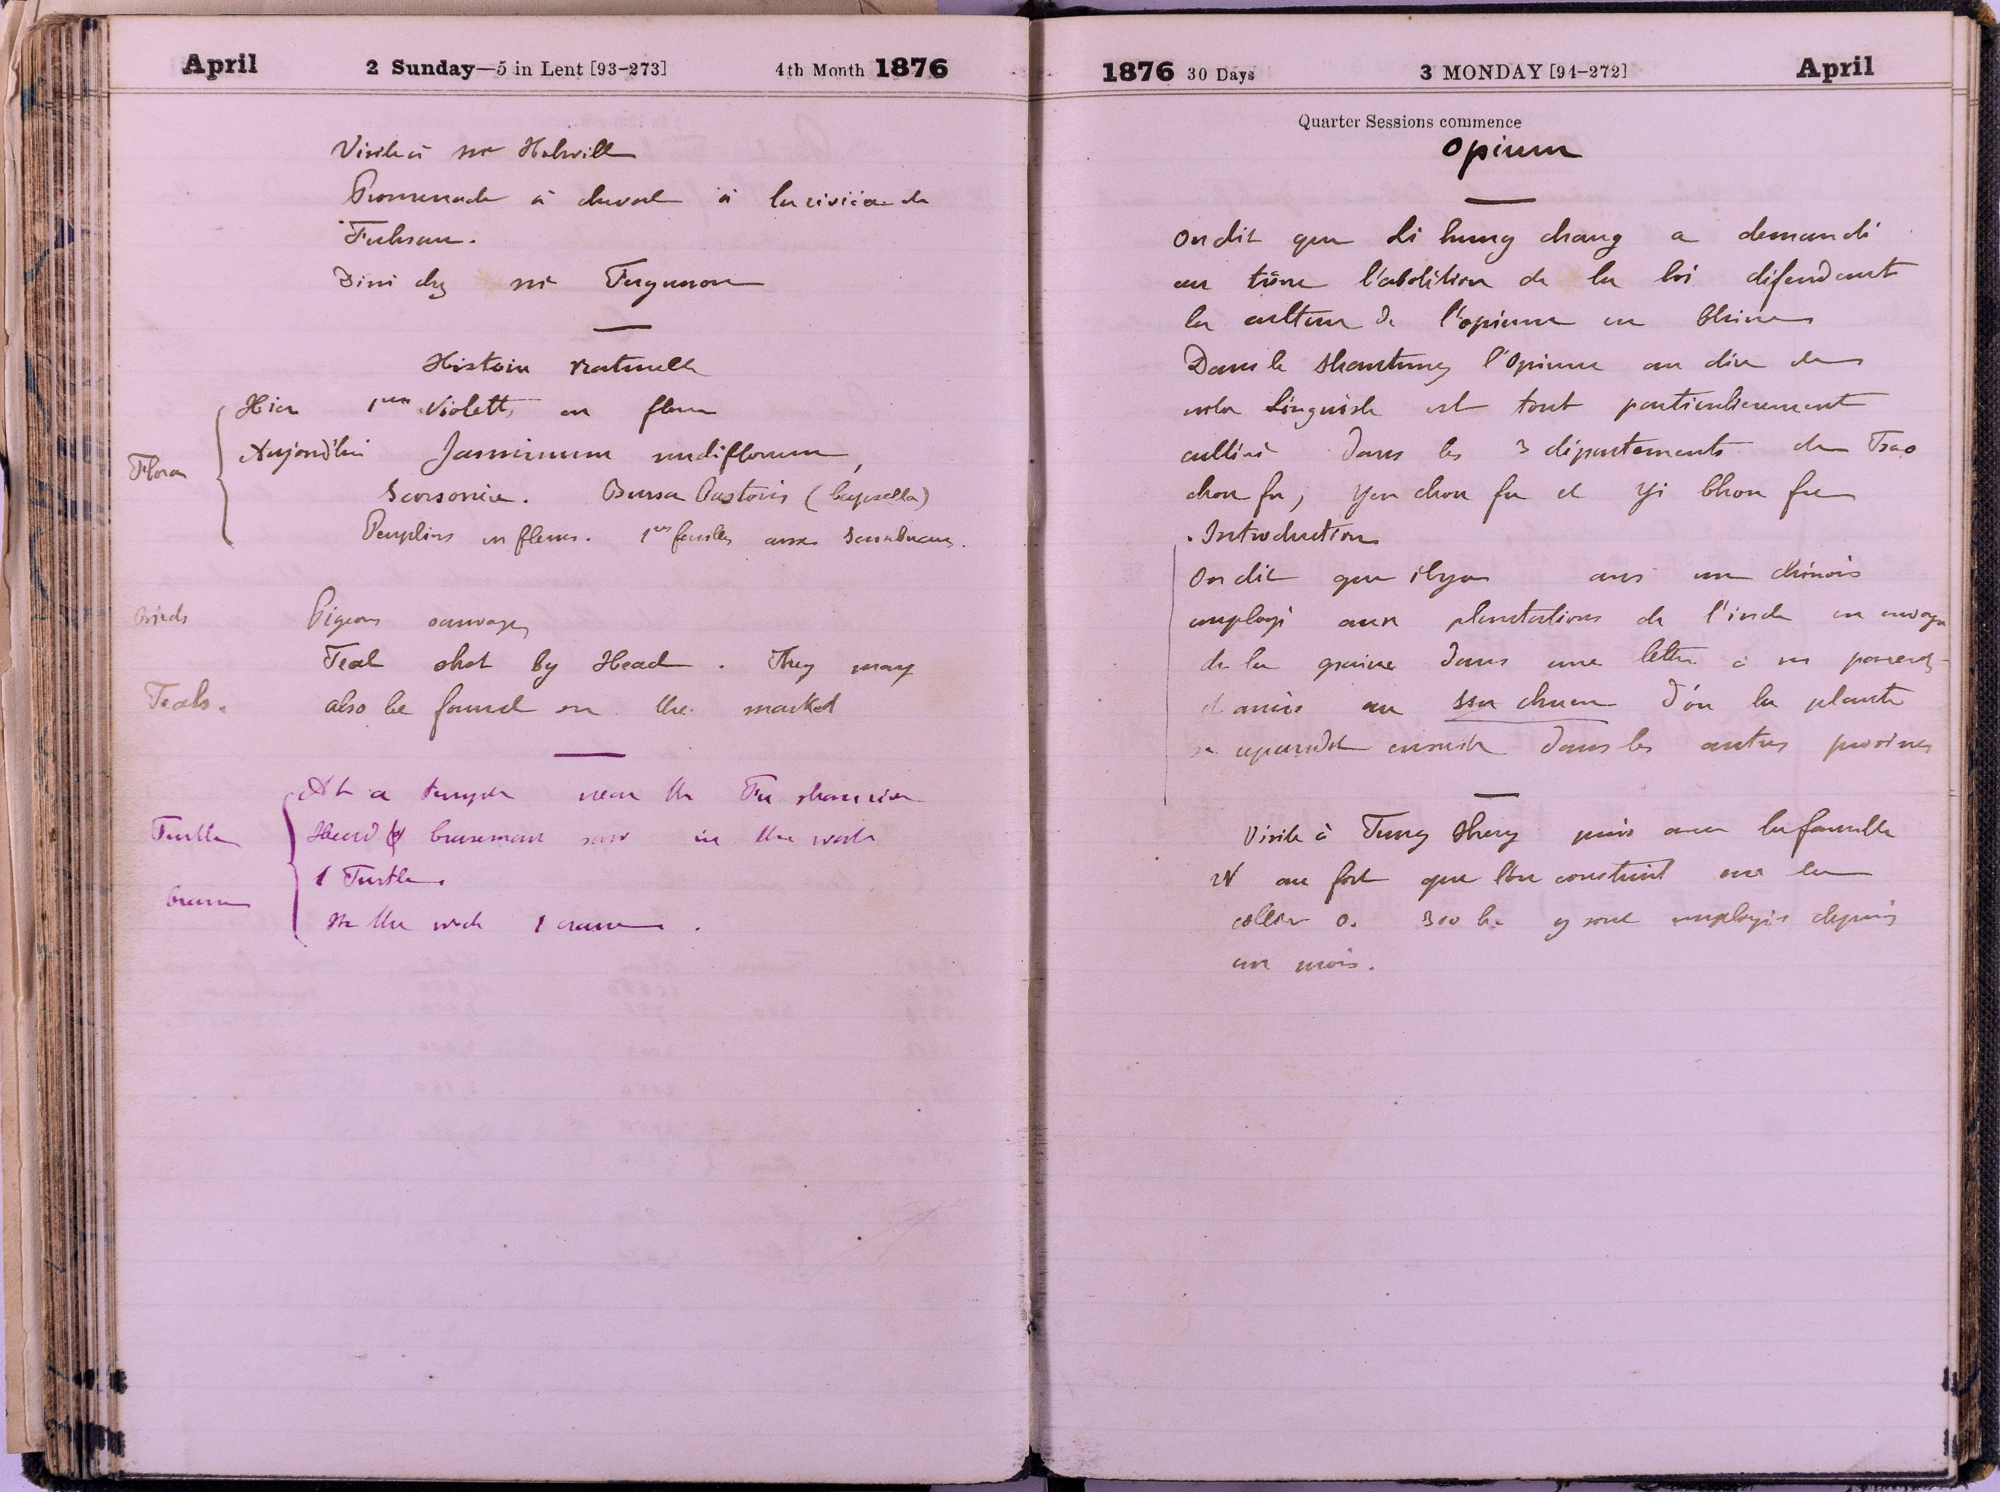 April 2 Sunday—5 in Lent [93-273] 4th Month 1876
Visite à Mr Holwill
Promenade à cheval à la rivière de
Fuhsan.
Diné chez Mr Ferguson
Histoire naturelle
Flora
Hier 1ères Violettes en fleur
Aujourd'hui Jasminum nudiflorum,
Scorsonère. Bursa Pastoris (Capsella)
Peupliers en fleurs. 1es feuilles aux Sambucus.
Birds Pigeons sauvages
Teal shot by Head. They may
Teals. also be found on the market
At a temple near the Fu shan river
Turtle Head & Cruseman saw in the week
1 Turtle.
Crane the week 1 crane.
1876 30 Days 3 MONDAY [94-272] April
Quarter Sessions commence
Opium
On dit que Li hung chang a demandé
au trône l'abolition de la loi défendant
la culture de l'opium en Chine
Dans le Shantung l'Opium au dire de
notre Linguiste est tout particulièrement
cultivé dans les 3 départements de Tsao
chou fu, Yen chou fu et Yi Chou fu
Introduction
On dit que il y a ans un chinois
employé aux plantations de l'inde en envoya
de la graine dans une lettre à ses parents
et amis au Ssu chuen d'où la plante
se répandit ensuite dans les autres provinces
Visite à Tung Shing puis avec la famille
N au fort que l'on construit sur la
colline O. 300 h. y sont employés depuis
un mois.